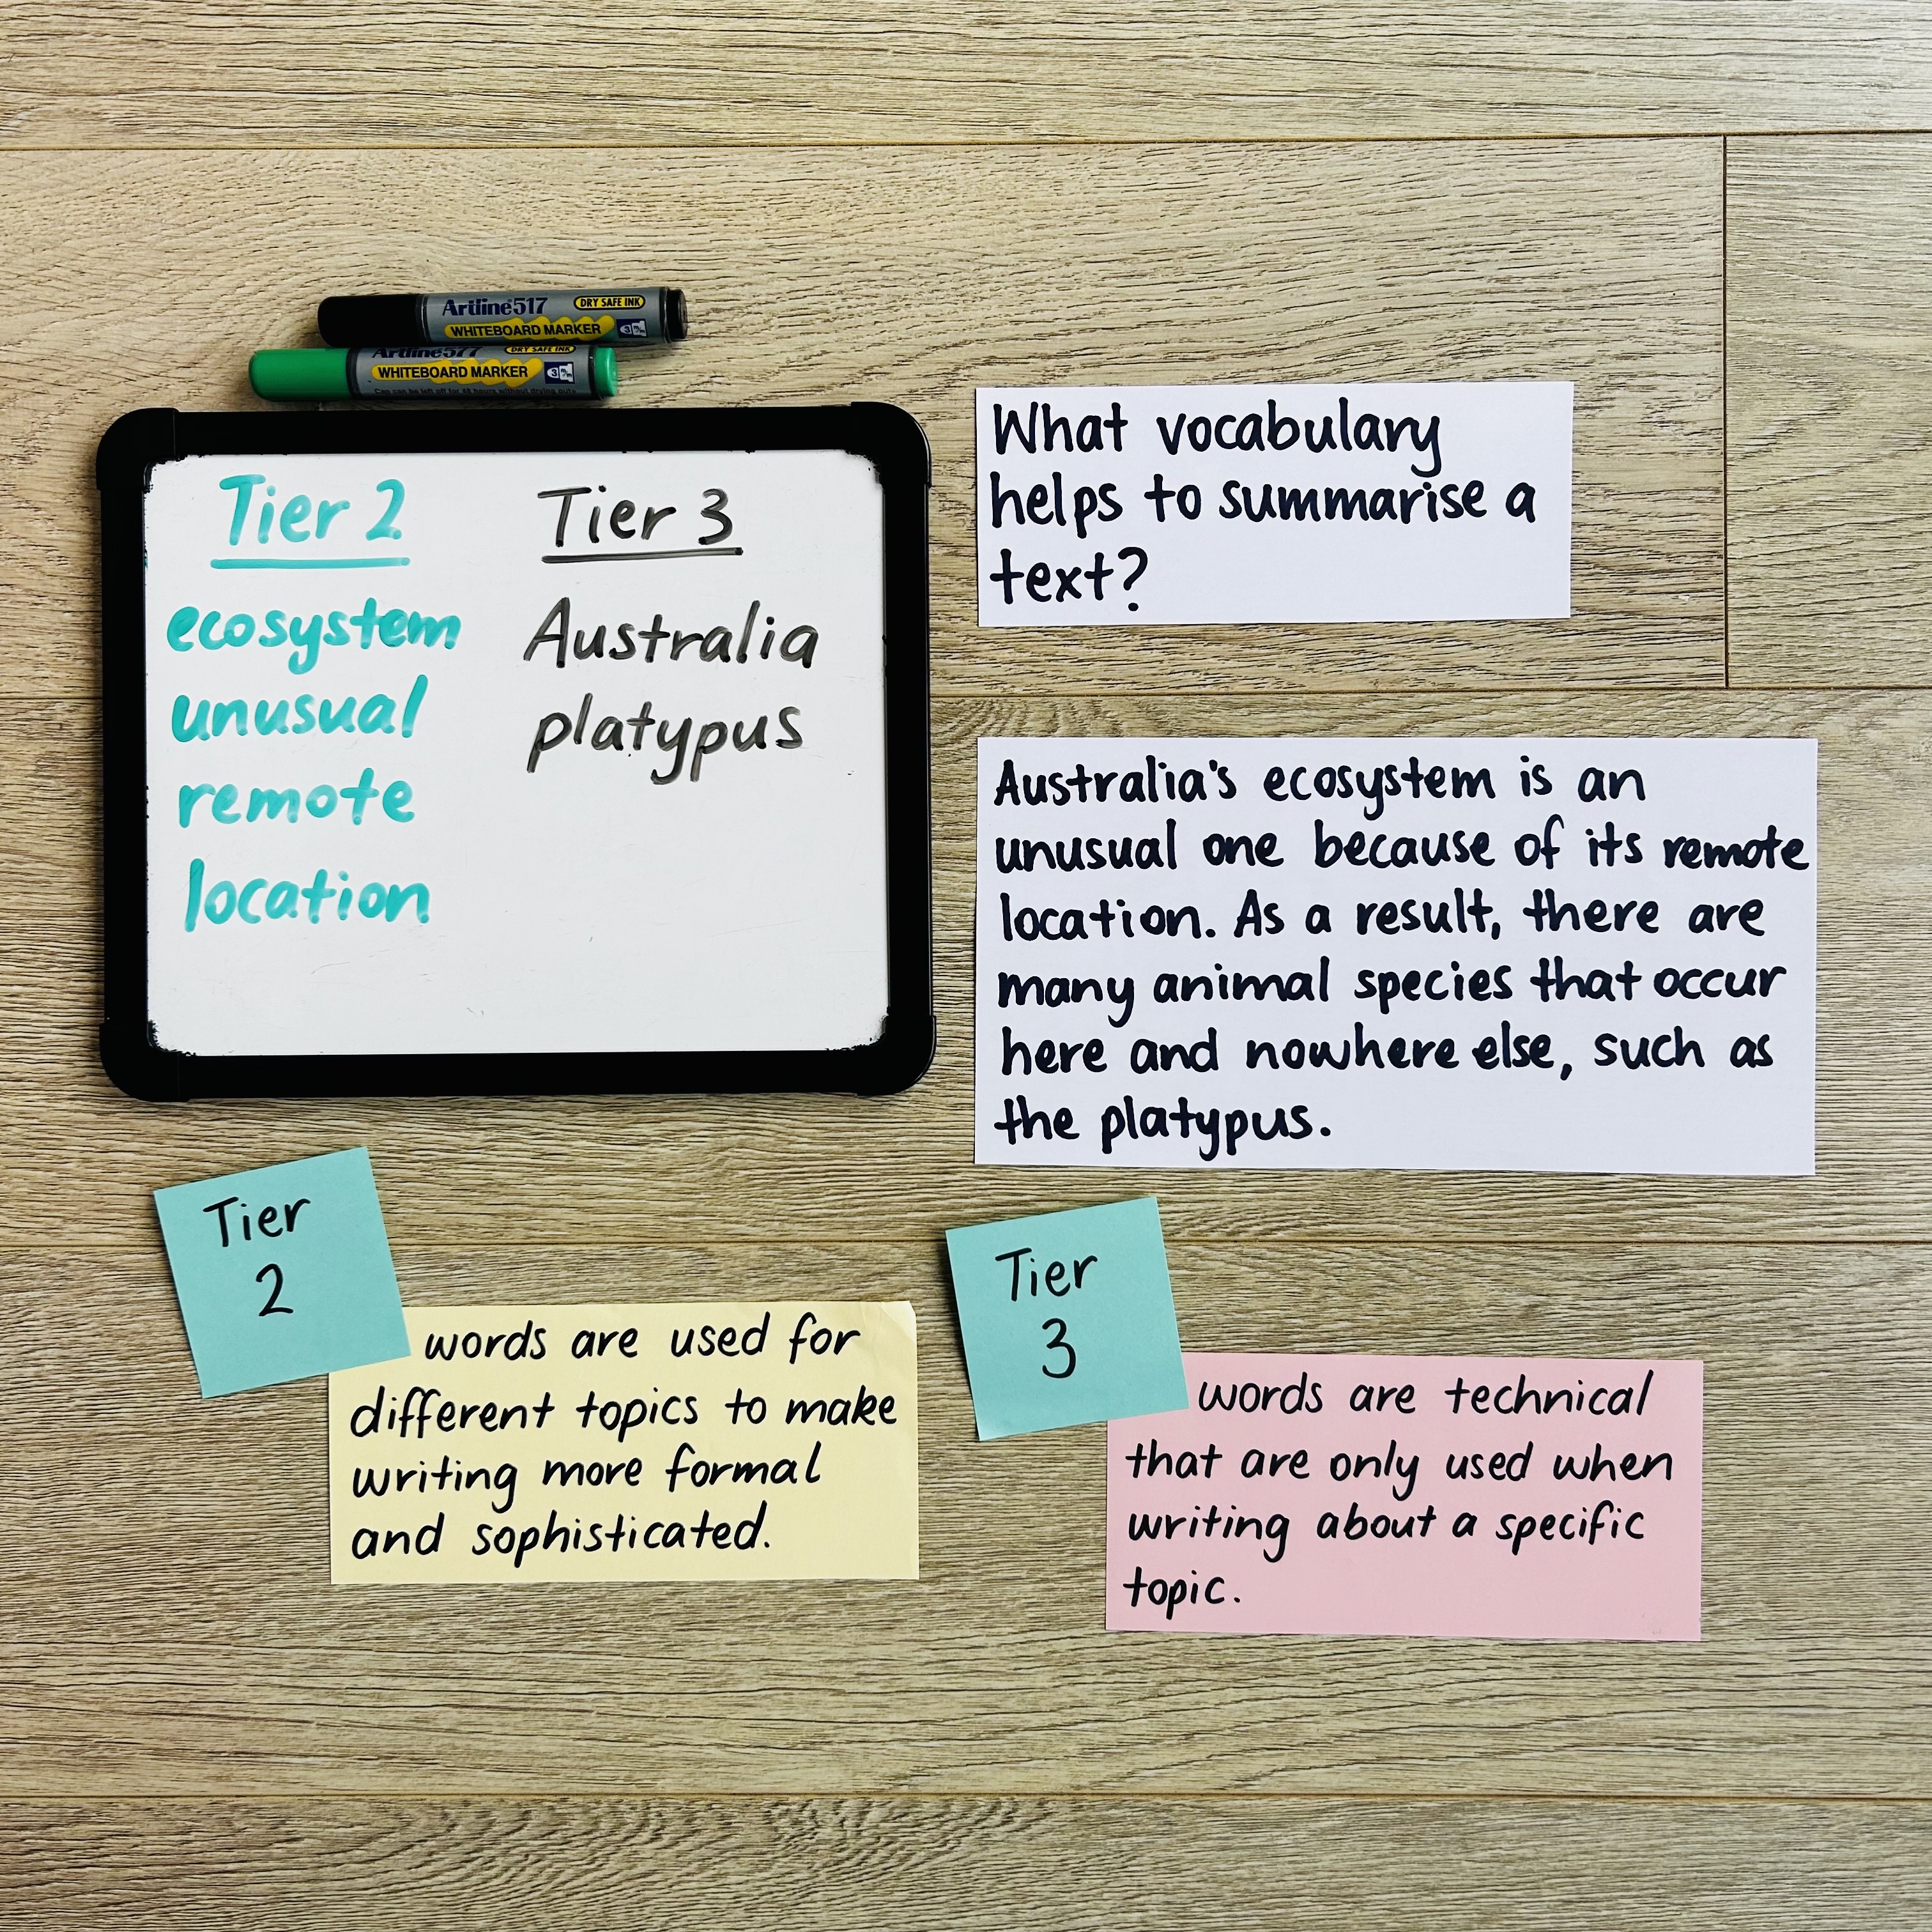 Artline 517 DRY SAFE INK
WHITEBOARD MARKER 3
Artline 577 DRY SAFE INK
WHITEBOARD MARKER 3
Cap can be left off for 48 hours without drying out
Tier 2
ecosystem
unusual
remote
location
Tier 3
Australia
platypus
What vocabulary
helps to summarise a
text?
Australia's ecosystem is an
unusual one because of its remote
location. As a result, there are
many animal species that occur
here and nowhere else, such as
the platypus.
Tier
2
words are used for
different topics to make
writing more formal
and sophisticated.
Tier
3
words are technical
that are only used when
writing about a specific
topic.